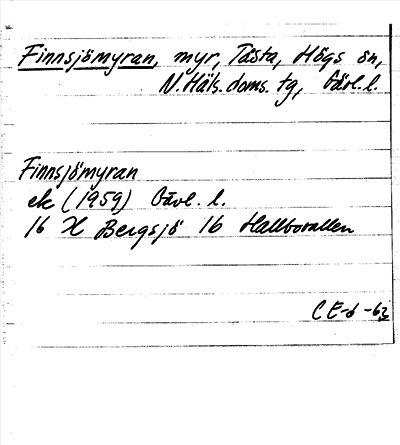 Finnsjömyran, myr, Tåsta, Högs sn,
N. Häls. doms. tg, Gävl. l.
Finnsjömyran
ek (1959) Gävl. l.
16 H Bergsjö 1b Hallbovallen
CE-6 -63